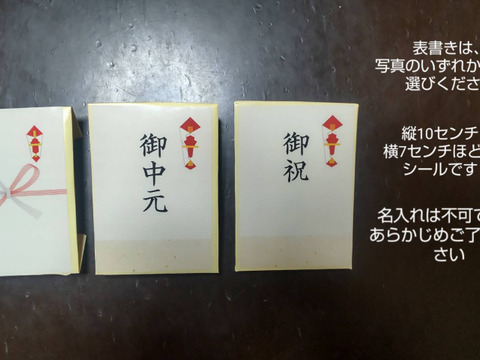 御中元
御祝
表書きは、
写真のいずれか
選びくださ
縦10センチ
横7センチほど
シールです
名入れは不可で
あらかじめご了
さい